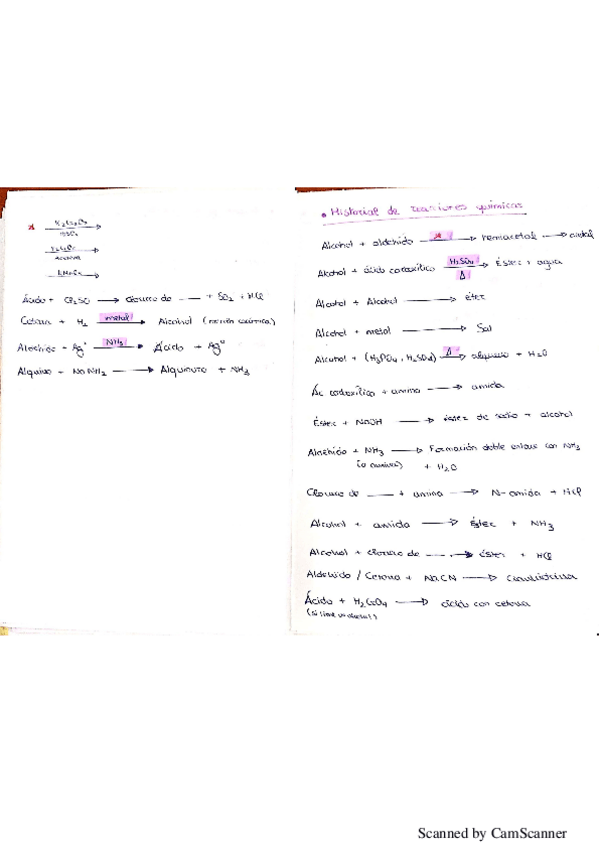 K₂Cr₂O₇
H₂SO₄
K₂Cr₂O₇
KMnO₄
Ácido + Cl₂SO → Cloruro de — + SO₂ + HCl
Cetona + H₂ metal → Alcohol
Aldehido + Ag⁺ NH₃ → Ácido + Ag⁰
Alquino + NaNH₂ → Alquinuro + NH₃
• Historial de reacciones químicas
Alcohol + aldehido → hemiacetal → acetal
Alcohol + ácido carboxílico H₂SO₄ Δ → Éster + agua
Alcohol + Alcohol → éter
Alcohol + metal → Sal
Alcohol + (H₃PO₄, H₂SO₄) Δ → alqueno + H₂O
Ác carboxílico + amina → amida
Éster + NaOH → éster de sodio + alcohol
Aldehido + NH₃ → Formación doble enlace con NH₃
(o amina) + H₂O
Cloruro de — + amina → N-amida + HCl
Alcohol + amida → Éster + NH₃
Alcohol + cloruro de — → éster + HCl
Aldehido / Cetona + NaCN → Cianhidrina
Ácido + H₂CrO₄ → ácido con cetona
Scanned by CamScanner